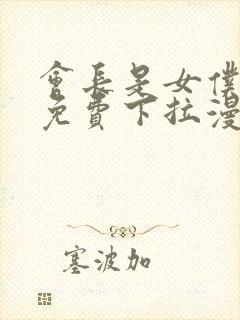 會長是女僕
免費下拉漫
塞波加